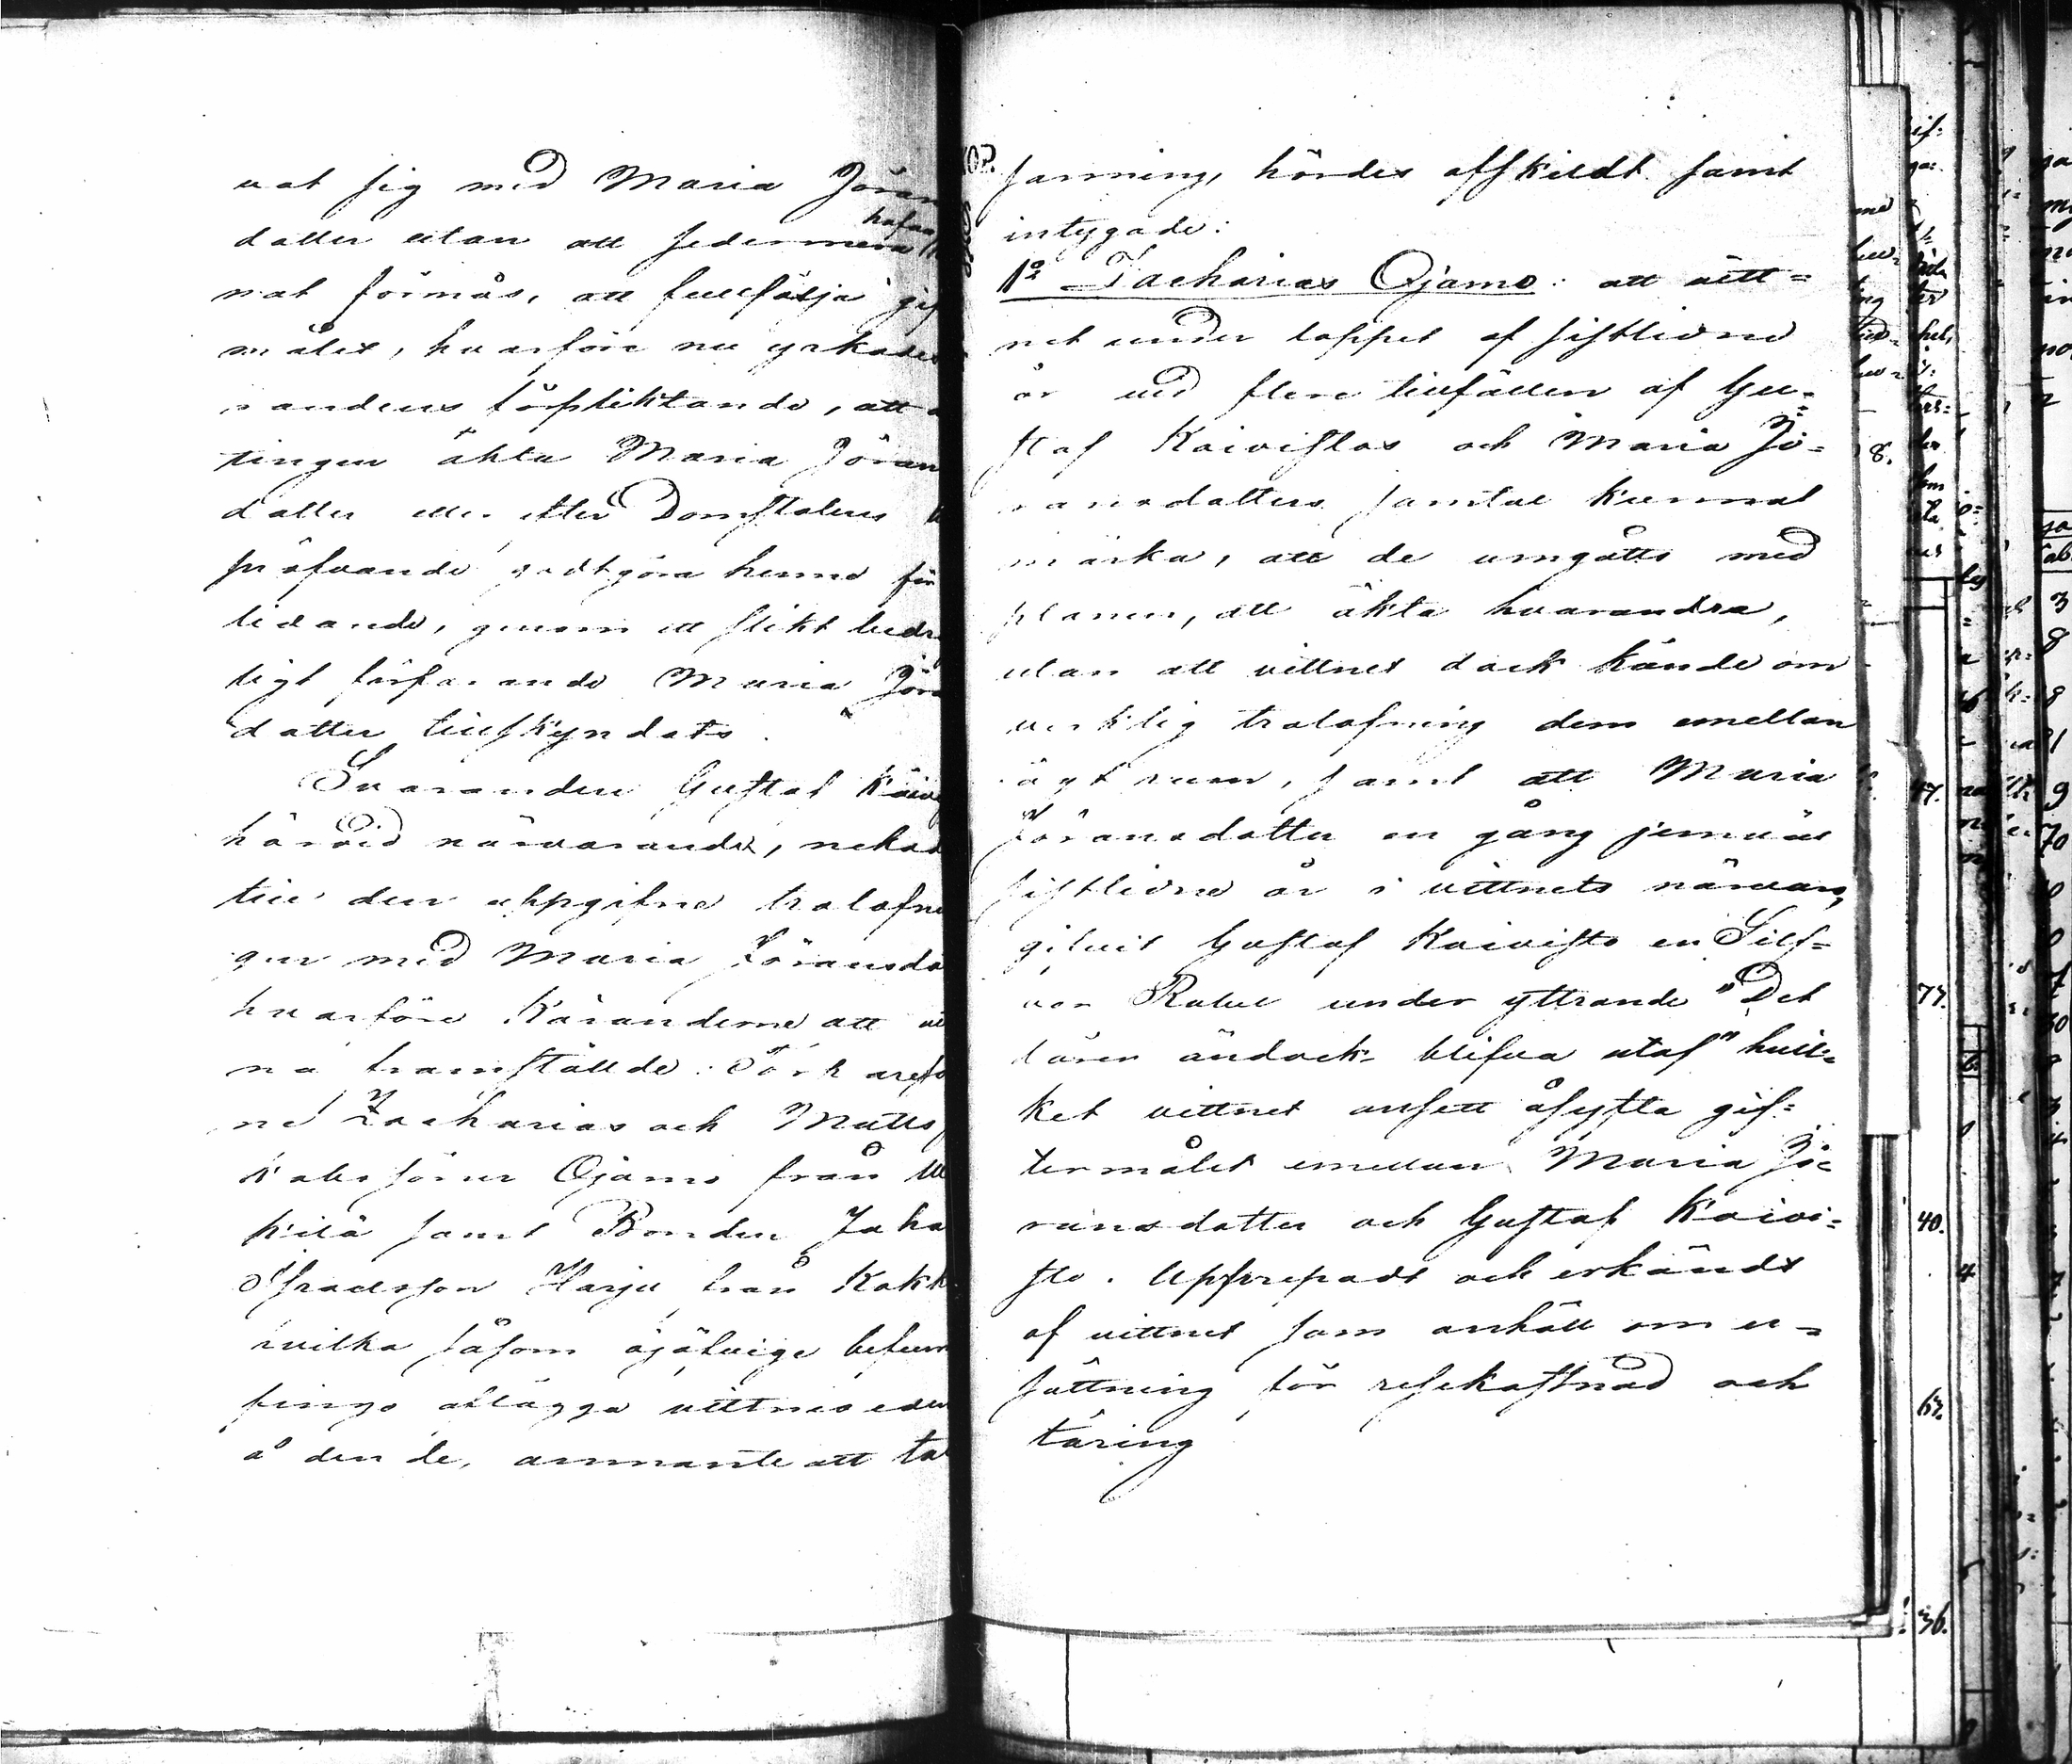 vat sig med Maria Jöran
dotter utan att sedermera hafva
nat förmås, att fullfölja gif
målet, hvarföre nu yrkades
randens förpliktande, att
tingen äkta Maria Jöran
dotter eller efter Domstolens
pröfvande godtgöra henne för
lidande, genom ett slikt bedrä
ligt förfarande Maria Jöra
dotter tillskyndats.
Svaranden Gustaf Koivi
härvid närvarande, nekad
till den uppgifne trolofnin
gen med Maria Jöransdo
hvarföre Käranderne att
na framställde:
ne Zacharias och Matts
kabssöner Ojamo från
kilä samt Bonden Joha
Israelsson Harju från Kokk
hvilka såsom ojäfvige befun
fingo aflägga vittneseden
å den de, anmante att tal
sanning, hördes afskildt samt
intygade:
1o Zacharias Ojamo: att vitt=
net under loppet af sistlidne
år vid flere tillfällen af Gu=
staf Koivistos och Maria Jö=
ransdotters samtal kunnat
märka, att de umgåtts med
planen, att äkta hvarandra,
utan att vittnet dock kände om
verklig trolofning dem emellan
ägt rum, samt att Maria
Jöransdotter en gång jemväl
sistlidne år i vittnets närvaro,
gifvit Gustaf Koivisto en Silf=
ver Rubel under yttrande "Det
lärer ändock blifva utaf" hvil=
ket vittnet ansett åsyfta gif=
termålet emellan Maria Jö=
ransdotter och Gustaf Koivi=
sto. Upprepadt och erkändt
af vittnet som anhöll om er=
sättning för resekostnad och
täring